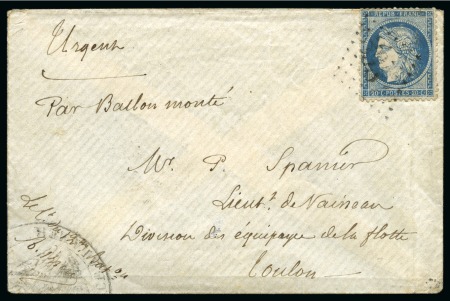 Urgent
REPUB. FRANC.
20 C. POSTES 20 C.
Par Ballon monté
Mr. P. Spanier
Lieut. de Vaisseau
Division des équipages de la flotte
Toulon